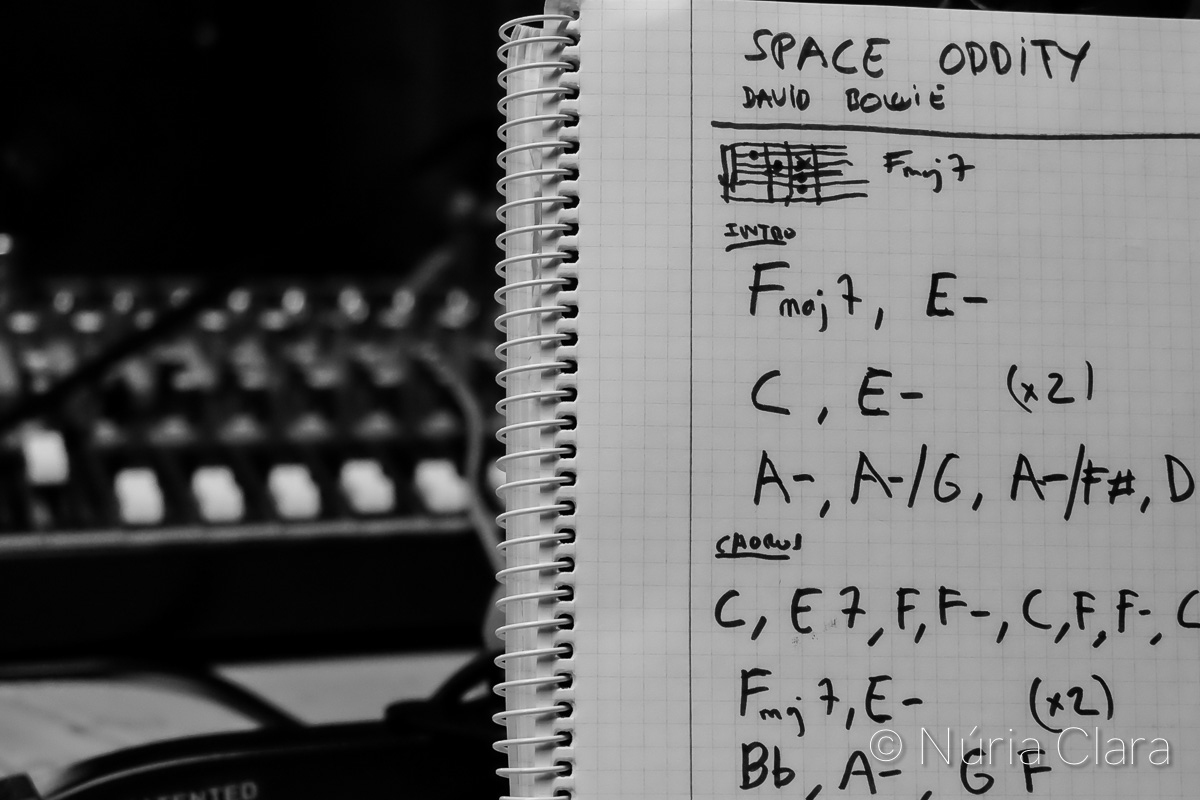 SPACE ODDiTY
DAVID BOWiE
Fmaj7
INTRO
Fmaj7, E-
C, E- (x2)
A-, A-/G, A-/F#, D
CHORUS
C, E7, F, F-, C, F, F-, C
Fmaj7, E- (x2)
Bb, A-, G F
© Núria Clara